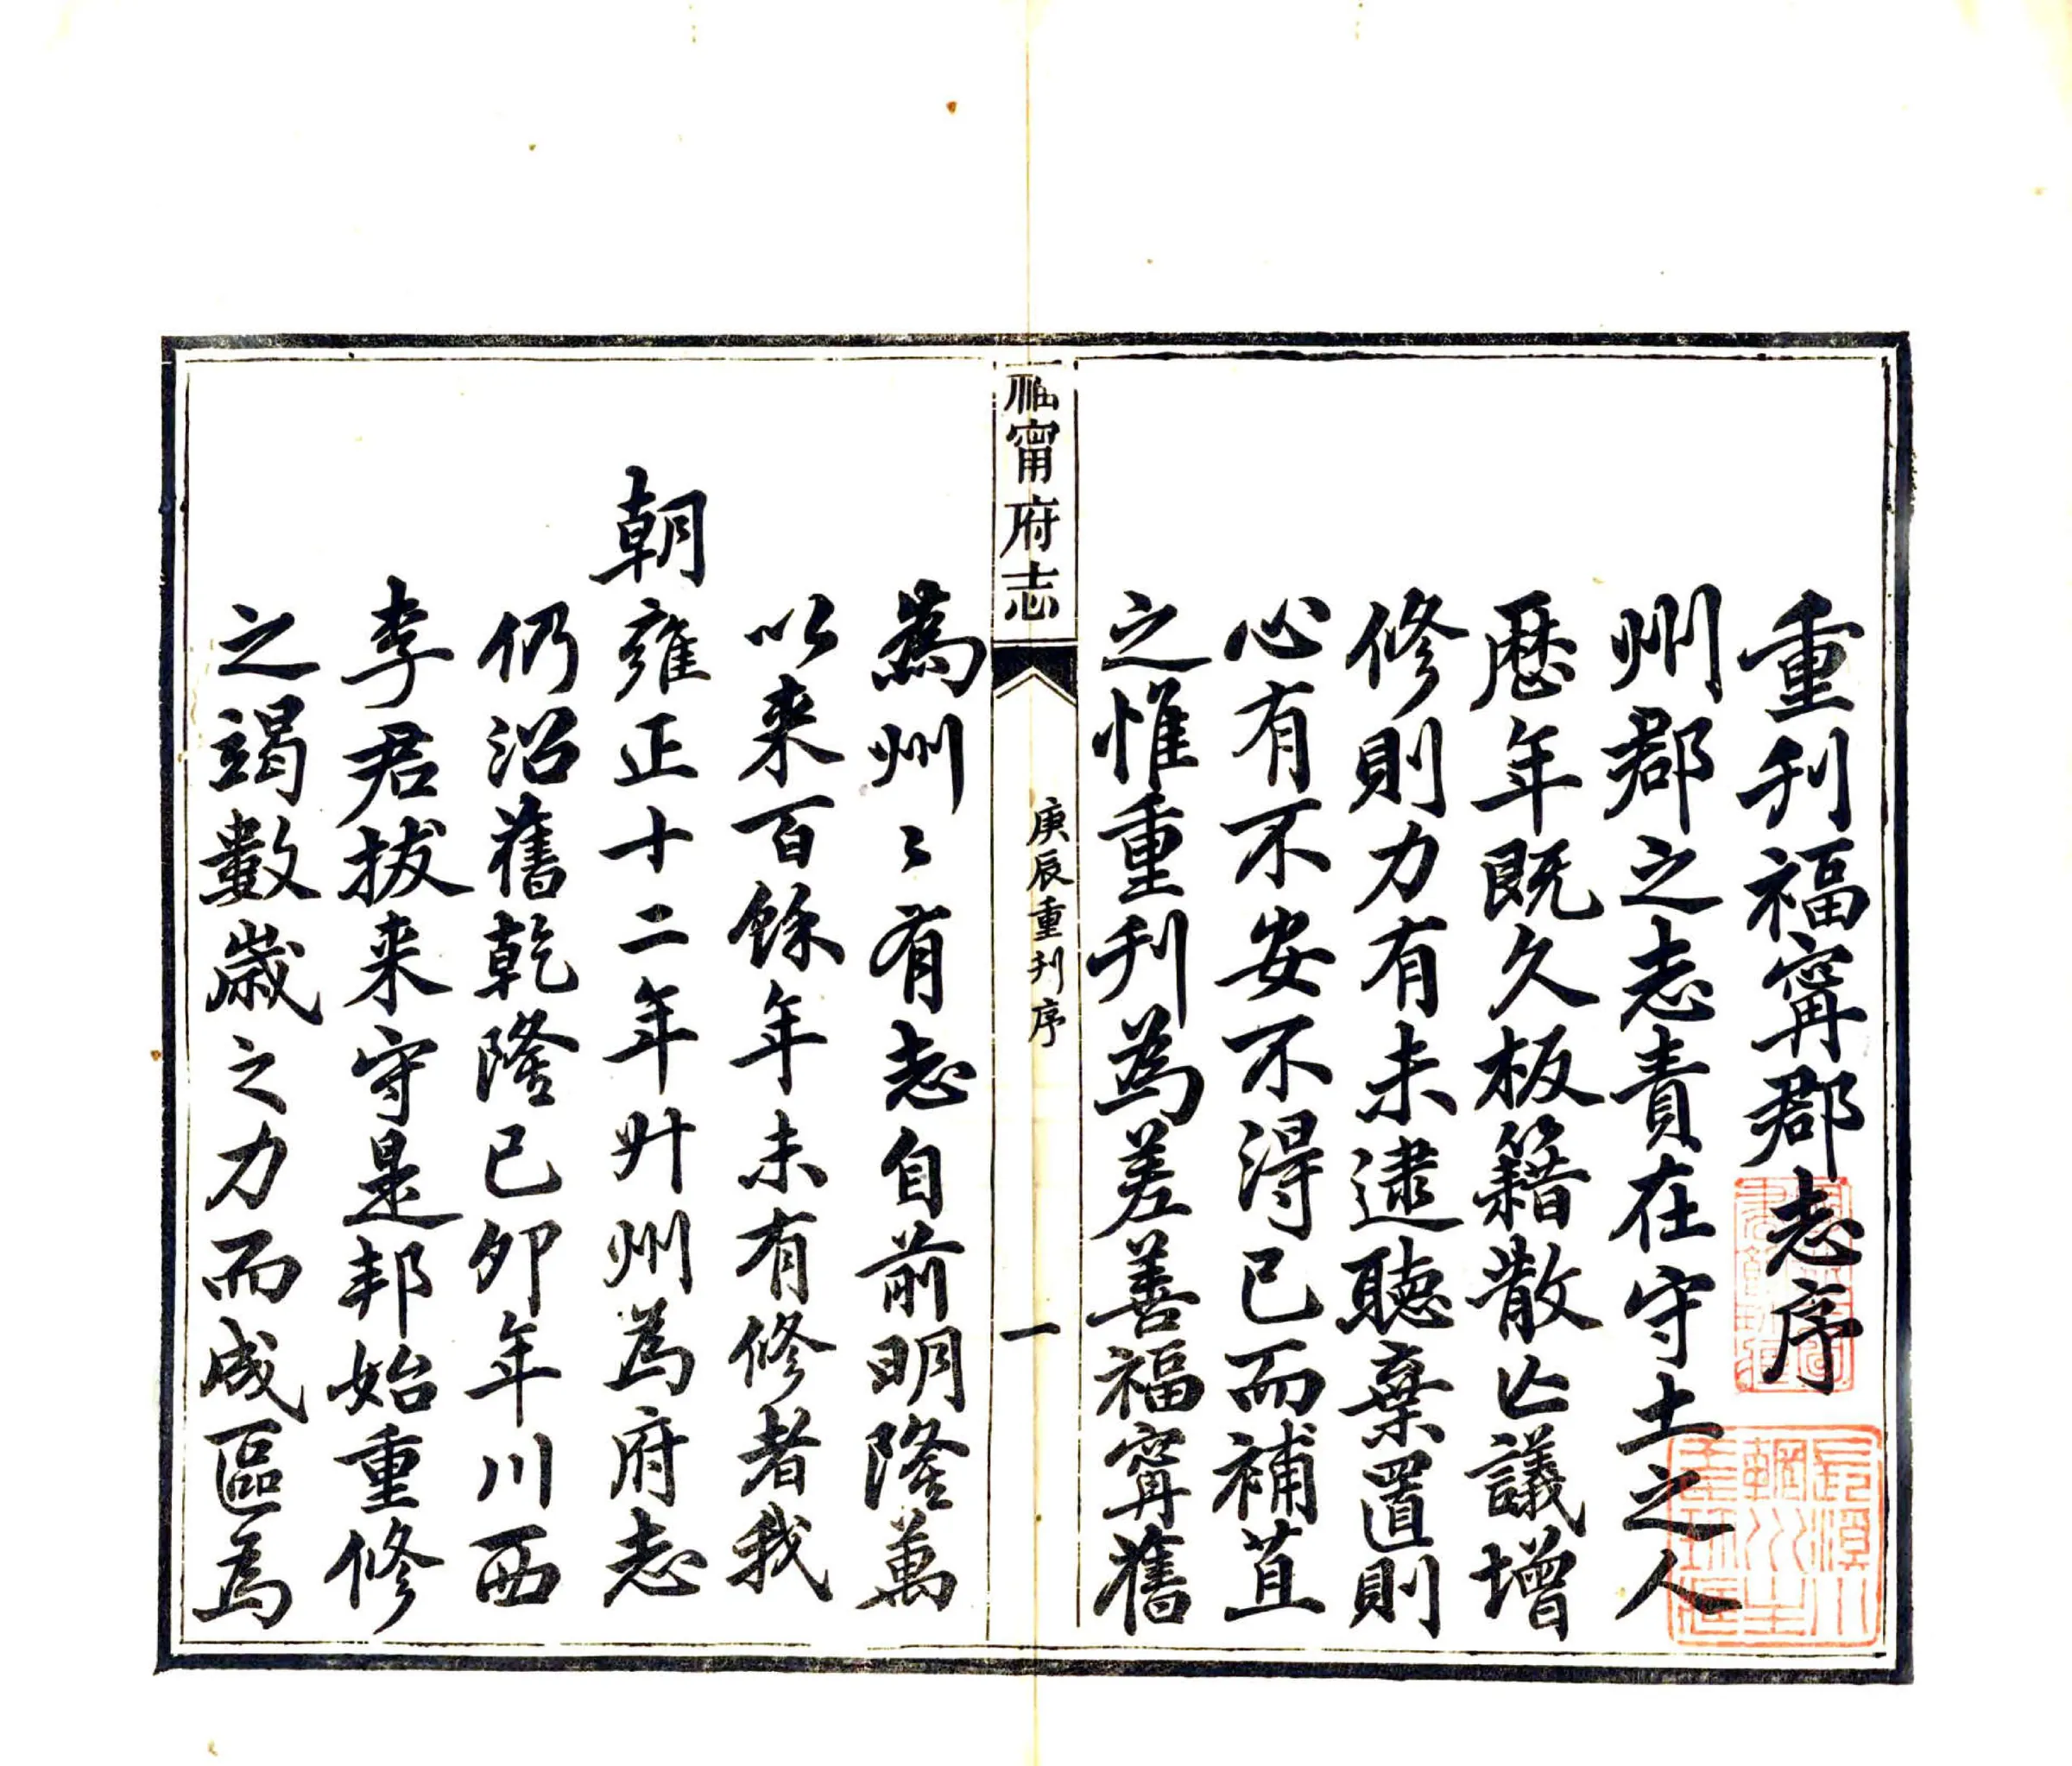 重刋福寗郡志序
州郡之志責在守土之人
歷年既久板籍散亾議增
修則力有未逮聽棄置則
心有不安不得已而補苴
之惟重刋為差善福寗舊
福甯府志
庚辰重刋序
一
為州〻有志自前明隆萬
以来百餘年未有修者我
朝雍正十二年升州為府志
仍沿舊乾隆己卯年川西
李君拔来守是邦始重修
之竭數歲之力而成區為